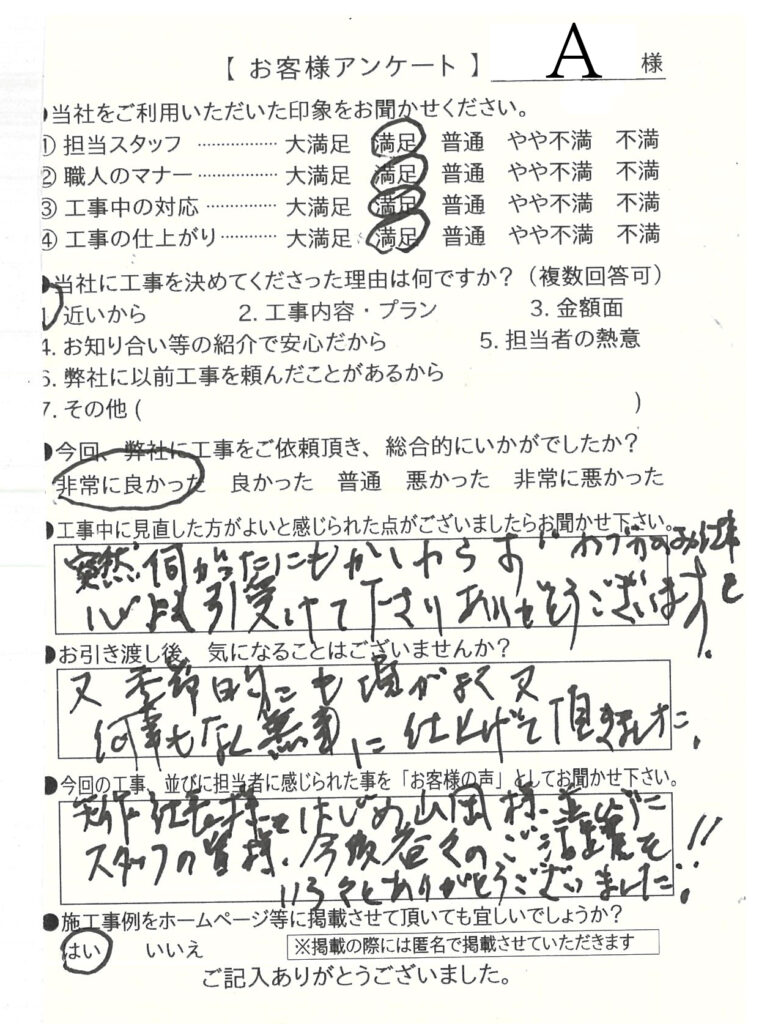 【 お客様アンケート 】 A 様
●当社をご利用いただいた印象をお聞かせください。
① 担当スタッフ ················ 大満足 満足 普通 やや不満 不満
② 職人のマナー ················ 大満足 満足 普通 やや不満 不満
③ 工事中の対応 ················ 大満足 満足 普通 やや不満 不満
④ 工事の仕上がり ··········· 大満足 満足 普通 やや不満 不満
●当社に工事を決めてくださった理由は何ですか？（複数回答可）
1. 近いから 2. 工事内容・プラン 3. 金額面
4. お知り合い等の紹介で安心だから 5. 担当者の熱意
6. 弊社に以前工事を頼んだことがあるから
7. その他 ( )
●今回、弊社に工事をご依頼頂き、総合的にいかがでしたか？
非常に良かった 良かった 普通 悪かった 非常に悪かった
●工事中に見直した方がよいと感じられた点がございましたらお聞かせ下さい。
突然 伺がったにもかかわらず わずかの
心よく引受けて下さりありがとうございます。
●お引き渡し後、気になることはございませんか？
又 季節的にも 場がよく 又
何事もなく無事に仕上げて頂きました。
●今回の工事、並びに担当者に感じられた事を「お客様の声」としてお聞かせ下さい。
社長様をはじめ 山岡様、並びに
スタッフの皆様、今後益々のご活躍を
いろいろとありがとうございました!!
●施工事例をホームページ等に掲載させて頂いても宜しいでしょうか？
はい いいえ ※掲載の際には匿名で掲載させていただきます
ご記入ありがとうございました。